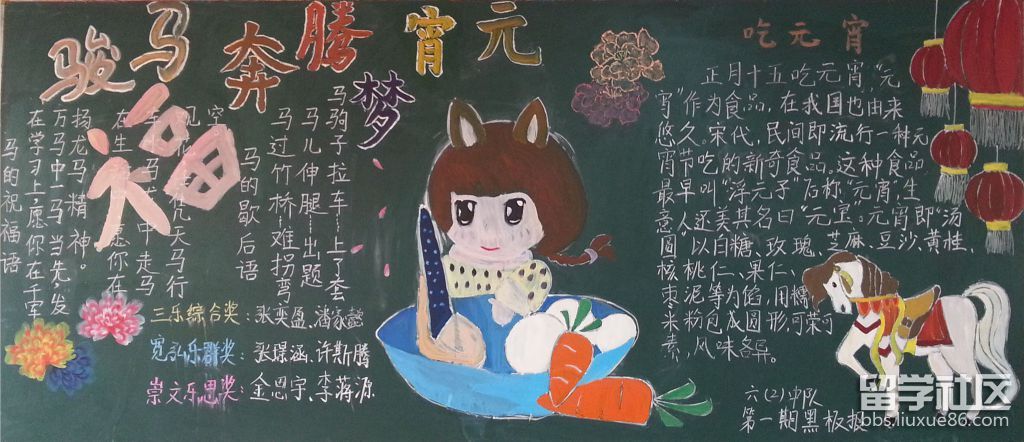 骏马奔腾宵元
梦
福
马的祝福语
在学习上,愿你在千军
万马中一马当先,发
扬龙马精神。
在生 愿你在
马 中走马
见 凭天马行
空
马的歇后语
马过竹桥难拐弯
马儿伸腿——出题
马驹子拉车——上了套
三乐综合奖:张奕盈、潘家懿
宽弘乐群奖:张璟涵、许斯腾
崇文乐思奖:金思宇、李蒋源
吃元宵
正月十五吃元宵,“元
宵”作为食品,在我国也由来
悠久。宋代,民间即流行一种元
宵节吃的新奇食品。这种食品
最早叫“浮元子”后称“元宵,生
意人还美其名曰“元宝。元宵即“汤
圆”以白糖、玫瑰、芝麻、豆沙、黄桂、
核桃仁、果仁、
枣泥等为馅,用糯
米粉包成圆形,可荤可
素,风味各异。
六(2)中队
第一期黑板报
留学社区
bbs.liuxue86.com